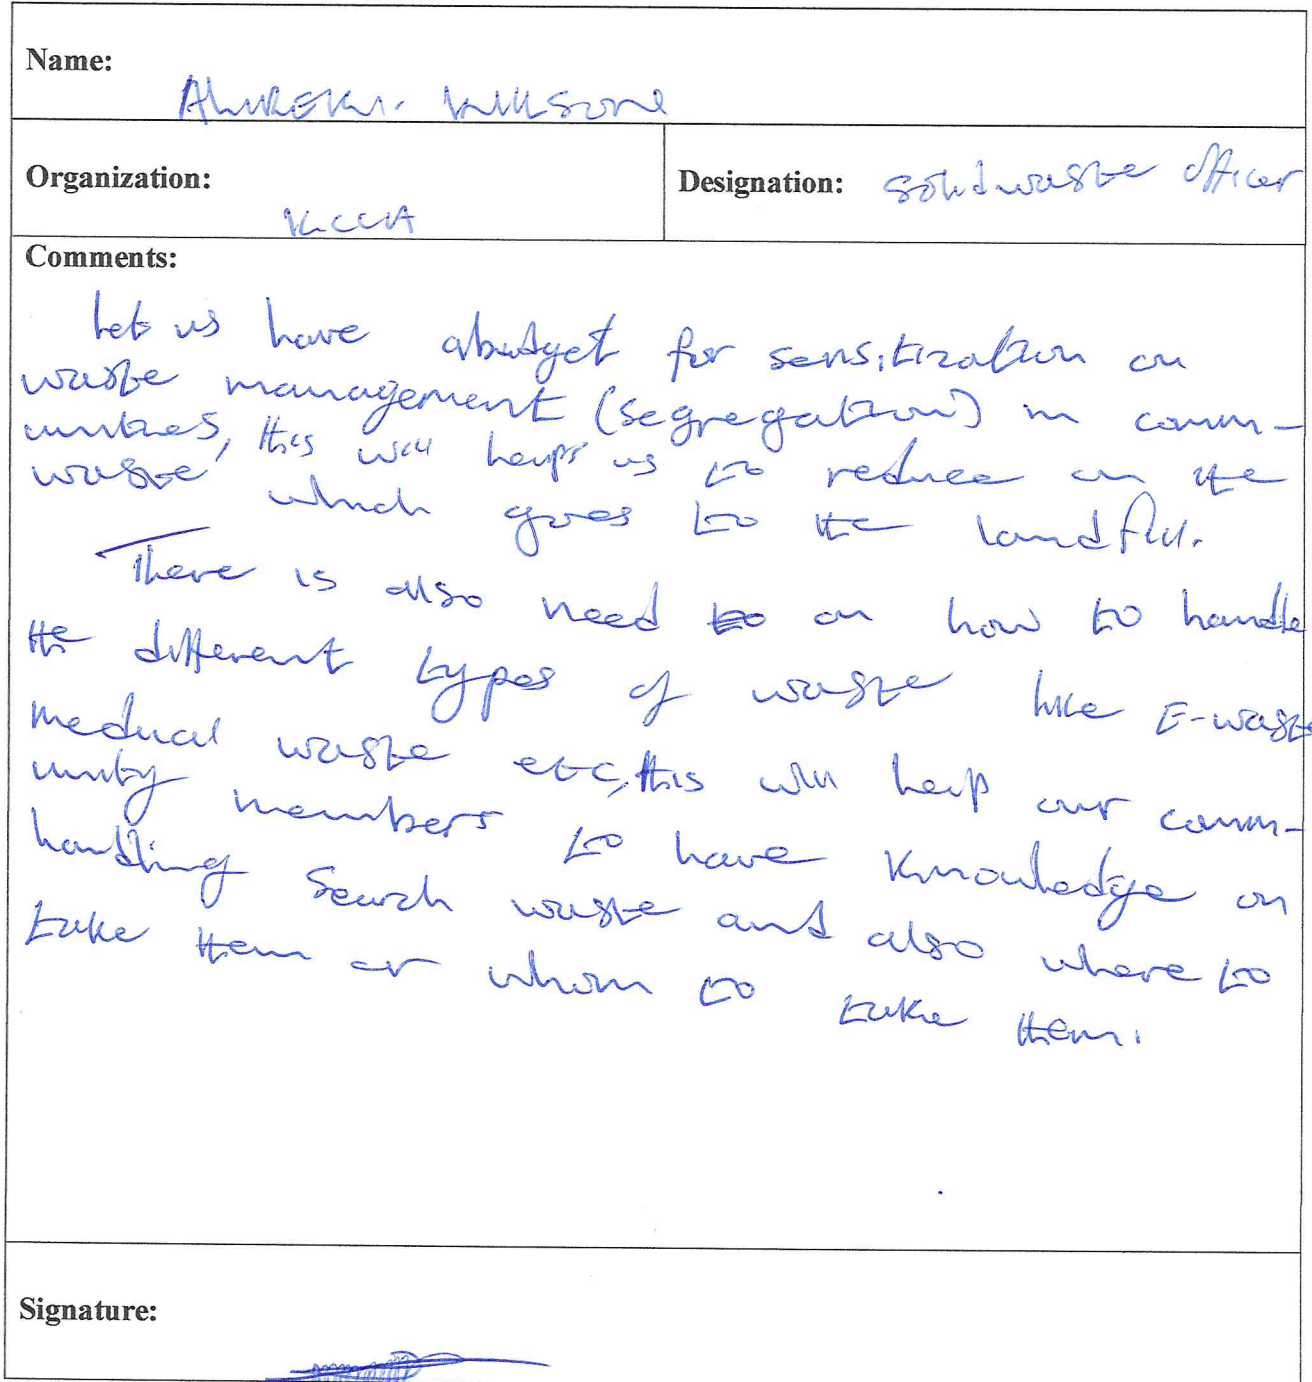 Name:
Organization:
KCCA
Designation: Solid waste officer
Comments:
Lets us have abudget for sensitization on
waste management (segregation) in comm-
unities, this will helps us to reduce on the
waste which goes to the landfill.
There is also need to on how to handle
the different types of waste like E-waste
medical waste etc, this will help our comm-
unity members to have knowledge on
handling Search waste and also where to
take them or whom to take them.
Signature: